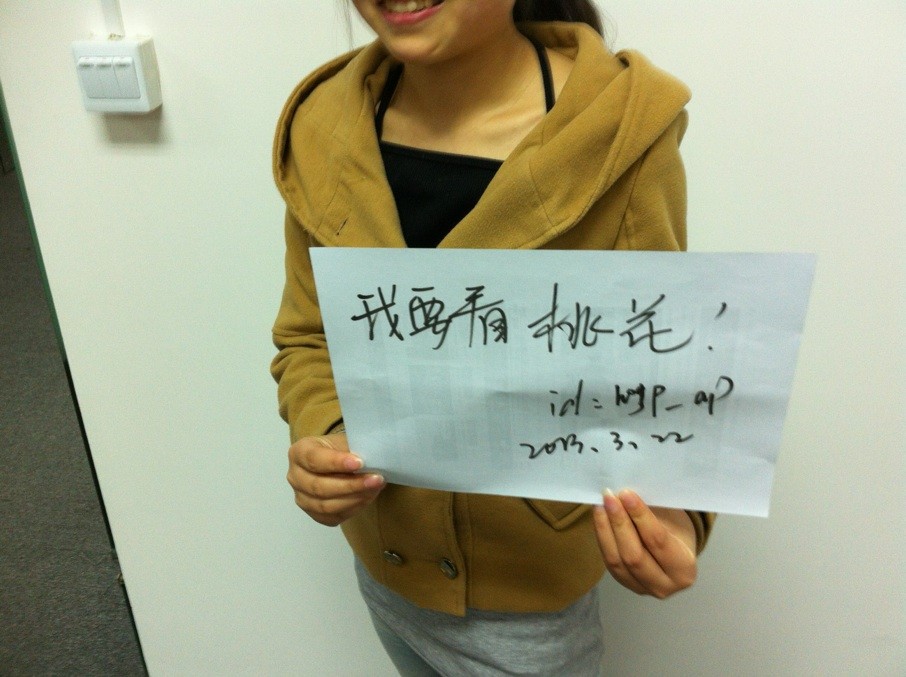 我要看桃花！
id: wyp_ap
2013.3.22